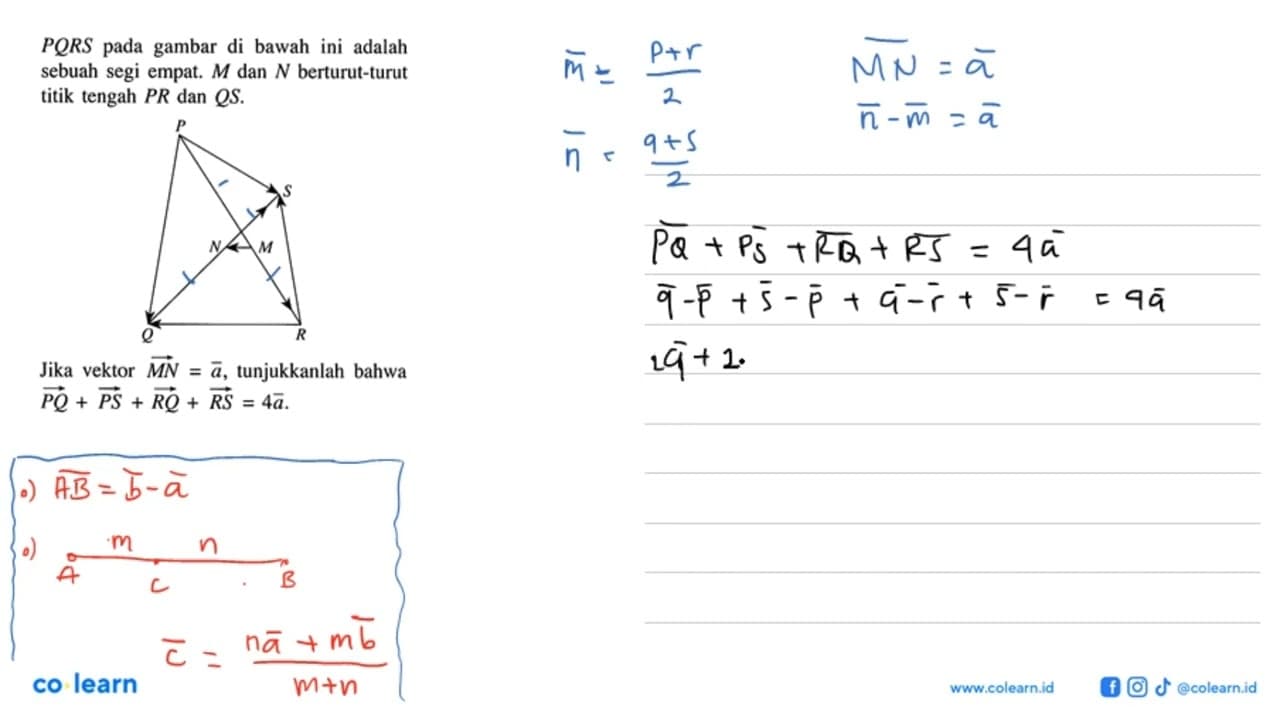 PQRS pada gambar di bawah ini adalah
sebuah segi empat. M dan N berturut-turut
titik tengah PR dan QS.
P
S
N
M
Q
R
Jika vektor \overrightarrow{MN} = \bar{a}, tunjukkanlah bahwa
\overrightarrow{PQ} + \overrightarrow{PS} + \overrightarrow{RQ} + \overrightarrow{RS} = 4\bar{a}.
•) \overline{AB} = \bar{b} - \bar{a}
•) m n
A C B
\bar{c} = \frac{n\bar{a} + m\bar{b}}{m+n}
\bar{m} = \frac{p+r}{2}
\bar{n} = \frac{q+s}{2}
\overline{MN} = \bar{a}
\bar{n} - \bar{m} = \bar{a}
\overline{PQ} + \overline{PS} + \overline{RQ} + \overline{RS} = 4\bar{a}
\bar{q} - \bar{p} + \bar{s} - \bar{p} + \bar{q} - \bar{r} + \bar{s} - \bar{r} = 4\bar{a}
2\bar{q} + 2.
co learn
www.colearn.id
@colearn.id